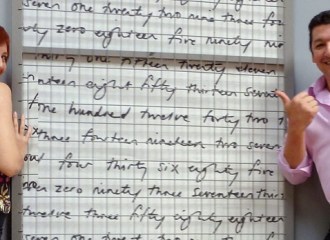 seven one two twenty two nine three four
ty zero eighteen five ninety nin
thirty one fifteen twenty eleven
nteen eight fifty thirteen seventy
five hundred twelve forty two
six three fourteen nineteen two seven
four thirty six eighty five
zero ninety three seventeen thir
twelve three fifty eighty eighteen
seven one two twenty two